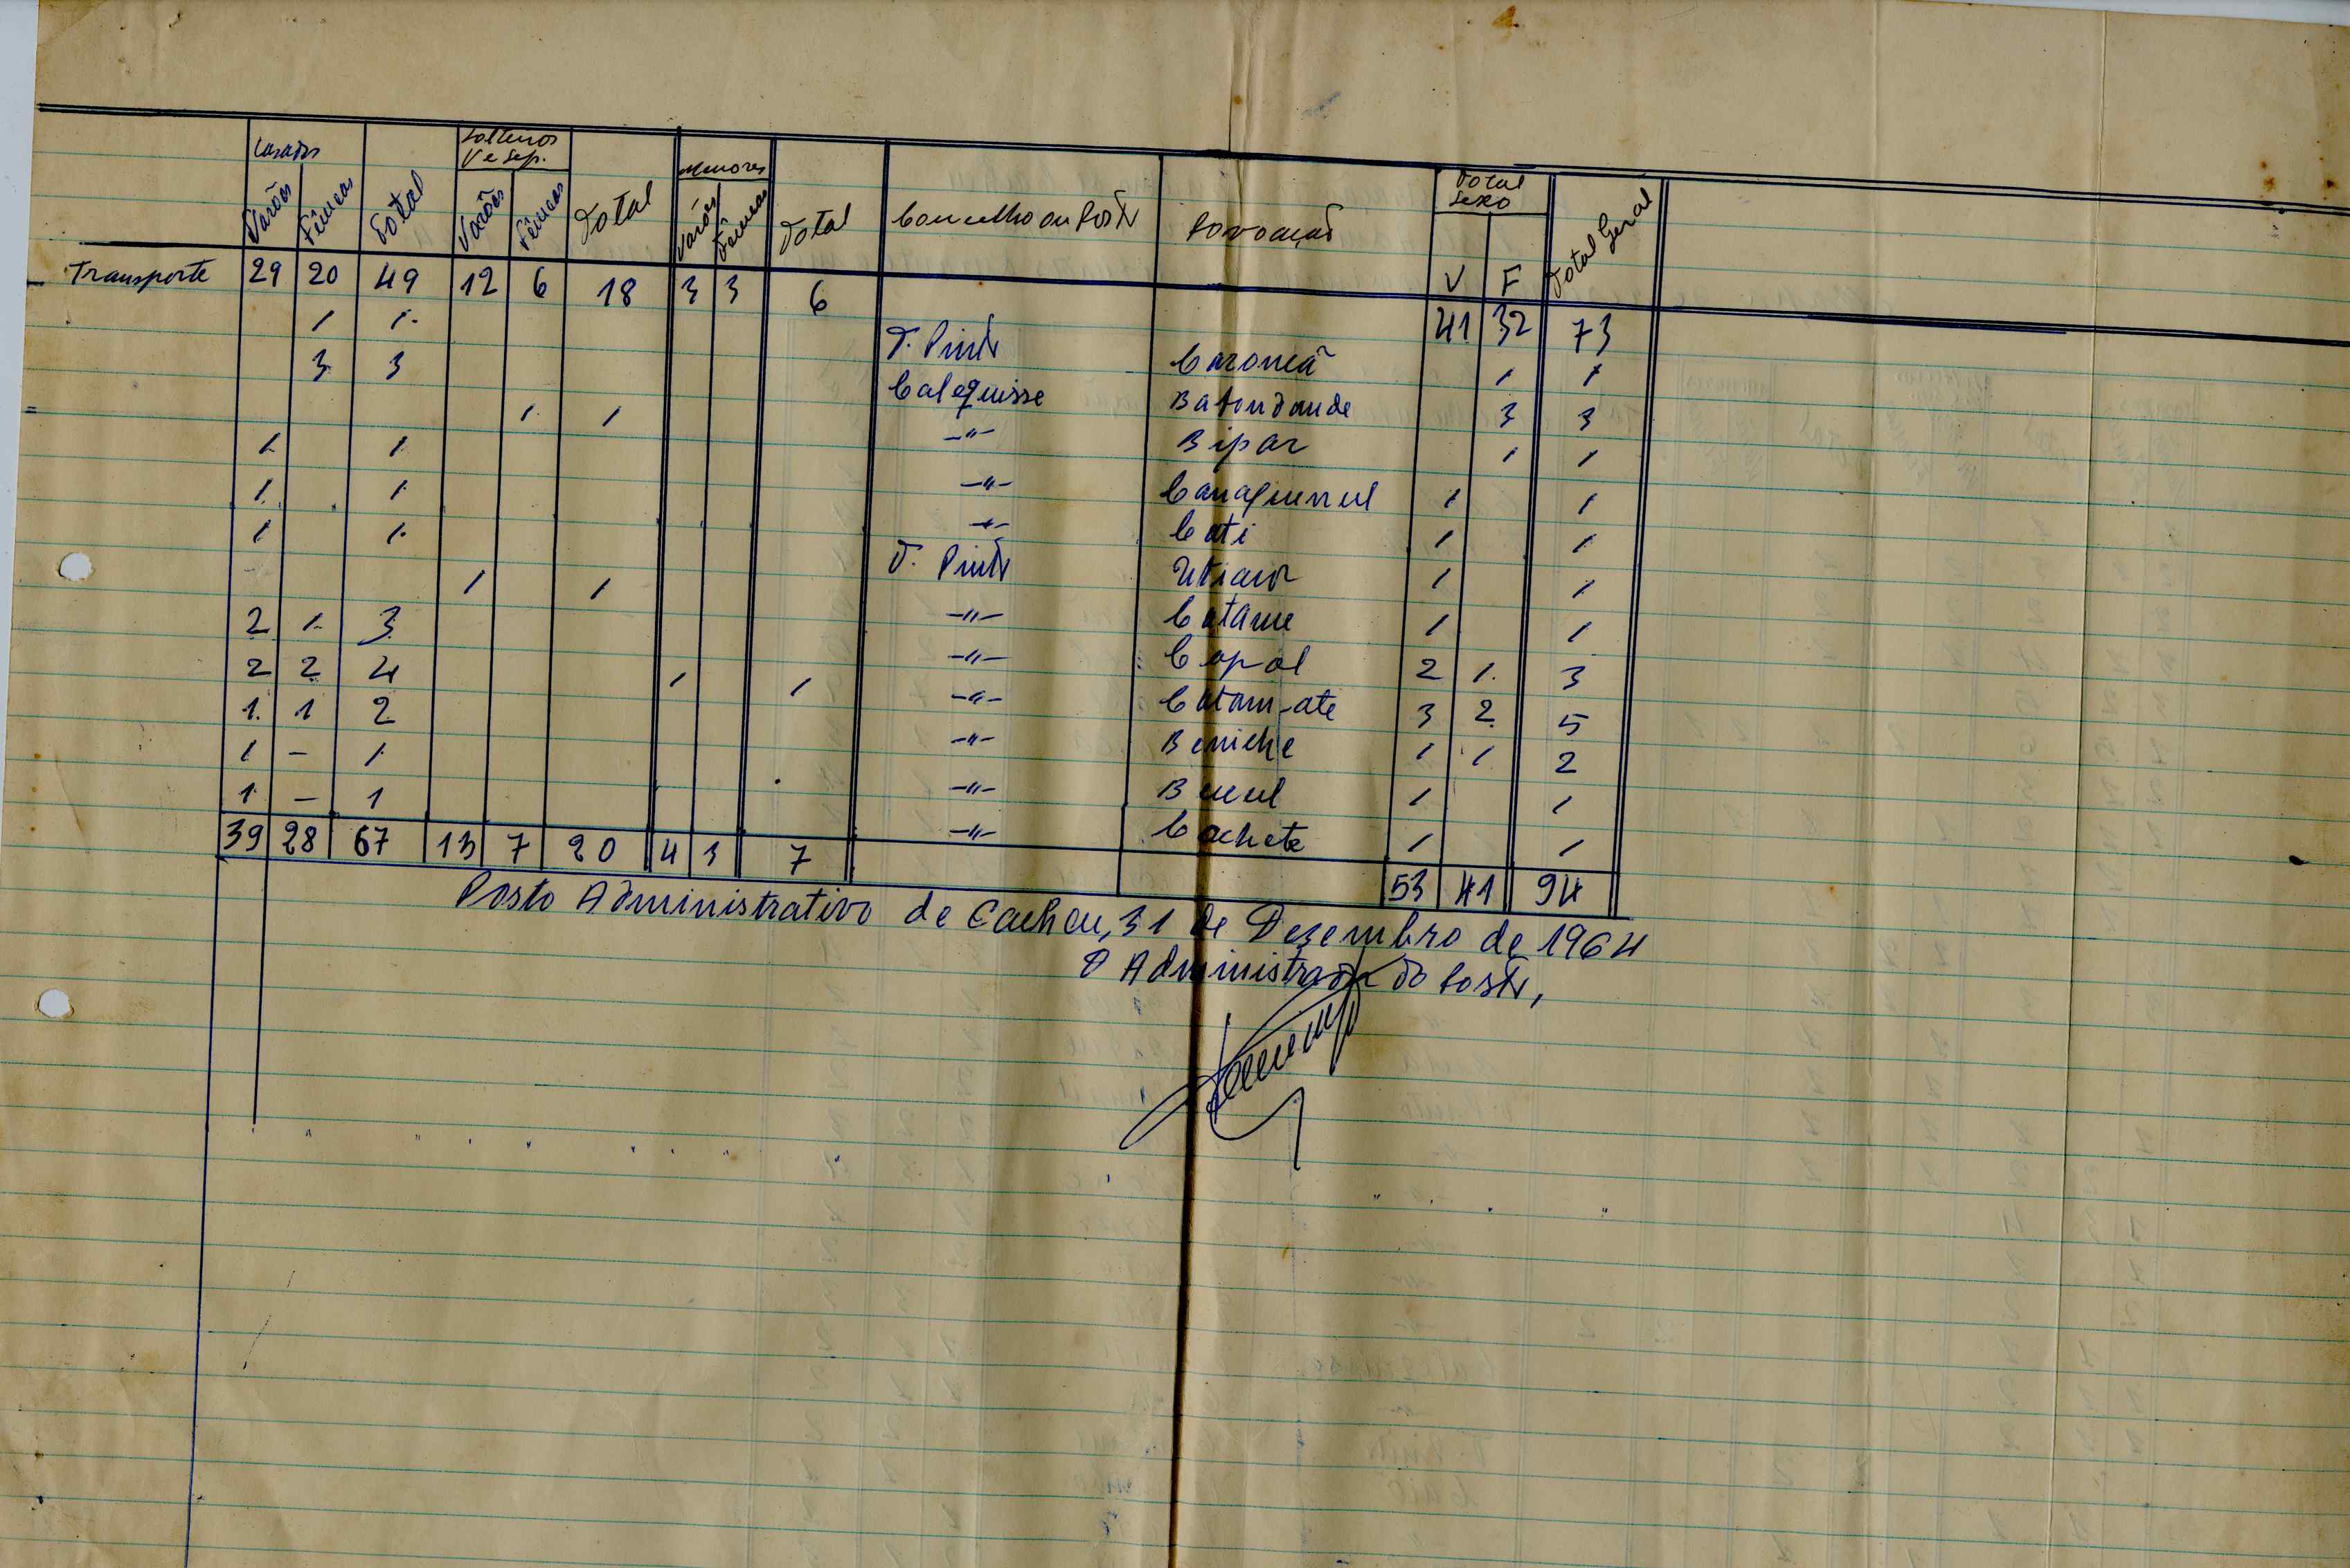 Casados Solteiros V e Sep. Menores Total Sexo
Varões Fêmeas Total Varões Fêmeas Total Varões Fêmeas Total Concelho ou Posto Povoação V F Total Geral
Transporte 29 20 49 12 6 18 3 3 6 41 32 73
1 1 T. Pinto Caroncã 1 1
3 3 Calequisse Batondande 3 3
1 1 -"- Bipar 1 1
1 1 -"- Canaquennul 1 1
1 1 -"- Cati 1 1
1 1 T. Pinto Utiaor 1 1
1 1 -"- Catame 1 1
2 1 3 -"- Capol 2 1 3
2 2 4 1 1 -"- Catam-ate 3 2 5
1 1 2 -"- Beniche 1 1 2
1 - 1 -"- Bucul 1 1
1 - 1 -"- Cachete 1 1
39 28 67 13 7 20 4 3 7 53 41 94
Posto Administrativo de Cacheu, 31 de Dezembro de 1964
O Administrador do Posto,